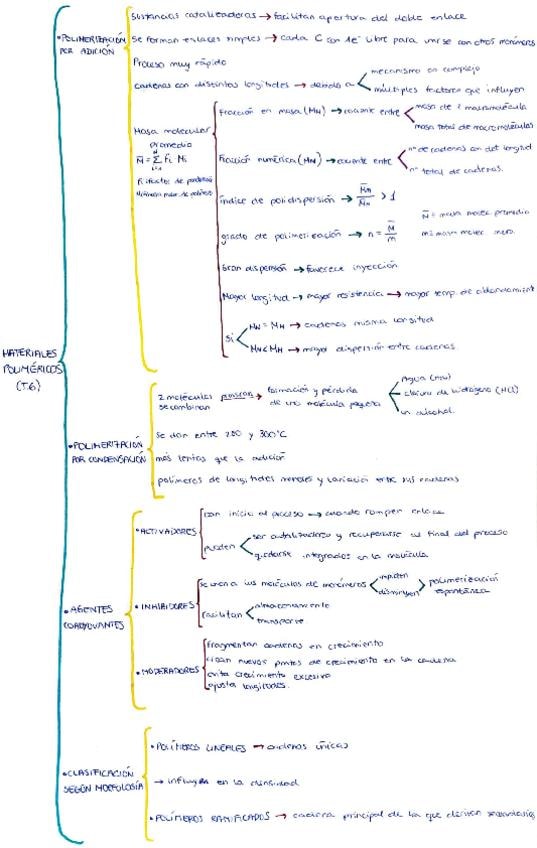 MATERIALES
POLIMÉRICOS
(T.6)
• POLIMERIZACIÓN
POR ADICIÓN
Sustancias catalizadoras → facilitan apertura del doble enlace
Se forman enlaces simples → cada C con 1e⁻ libre para unirse con otros monómeros
Proceso muy rápido
cadenas con distintas longitudes → debido a
mecanismo en complejo
múltiples factores que influyen
Masa molecular
promedio
Fracción en masa (MM) → cociente entre
masa de 1 macromolécula
masa total de macromoléculas
Fracción numérica (MN) → cociente entre
nº de cadenas con det longitud
nº total de cadenas.
índice de polidispersión → > 1
grado de polimerización → n = M̄/m
M̄ = masa molec promedio
m = masa molec mero.
Gran dispersión → favorece inyección
Mayor longitud → mayor resistencia → mayor temp. de ablandamient
Si
MN = MM → cadenas misma longitud
MN < MM → mayor dispersión entre cadenas.
• POLIMERIZACIÓN
POR CONDENSACIÓN
2 moléculas
se combinan
formación y pérdida
de una molécula pequeña
Agua (H₂O)
cloruro de hidrógeno (HCl)
un alcohol.
Se dan entre 200 y 300°C
más lentas que la adición
polímeros de longitudes menores y variación entre sus cadenas
• AGENTES
COADYUVANTES
• ACTIVADORES
Dan inicio al proceso → cuando rompen enlace
pueden
ser catalizadores y recuperarse al final del proceso
quedarse integrados en la molécula.
• INHIBIDORES
Se unen a las moléculas de monómeros
impiden
disminuyen
polimerización
espontánea
Facilitan
almacenamiento
transporte
• MODERADORES
Fragmentan cadenas en crecimiento
crean nuevos puntos de crecimiento en la cadena
evita crecimiento excesivo
ajusta longitudes.
• CLASIFICACIÓN
SEGÚN MORFOLOGÍA
• POLÍMEROS LINEALES → cadenas únicas
→ influyen en la densidad
• POLÍMEROS RAMIFICADOS → cadena principal de la que derivan secundarias